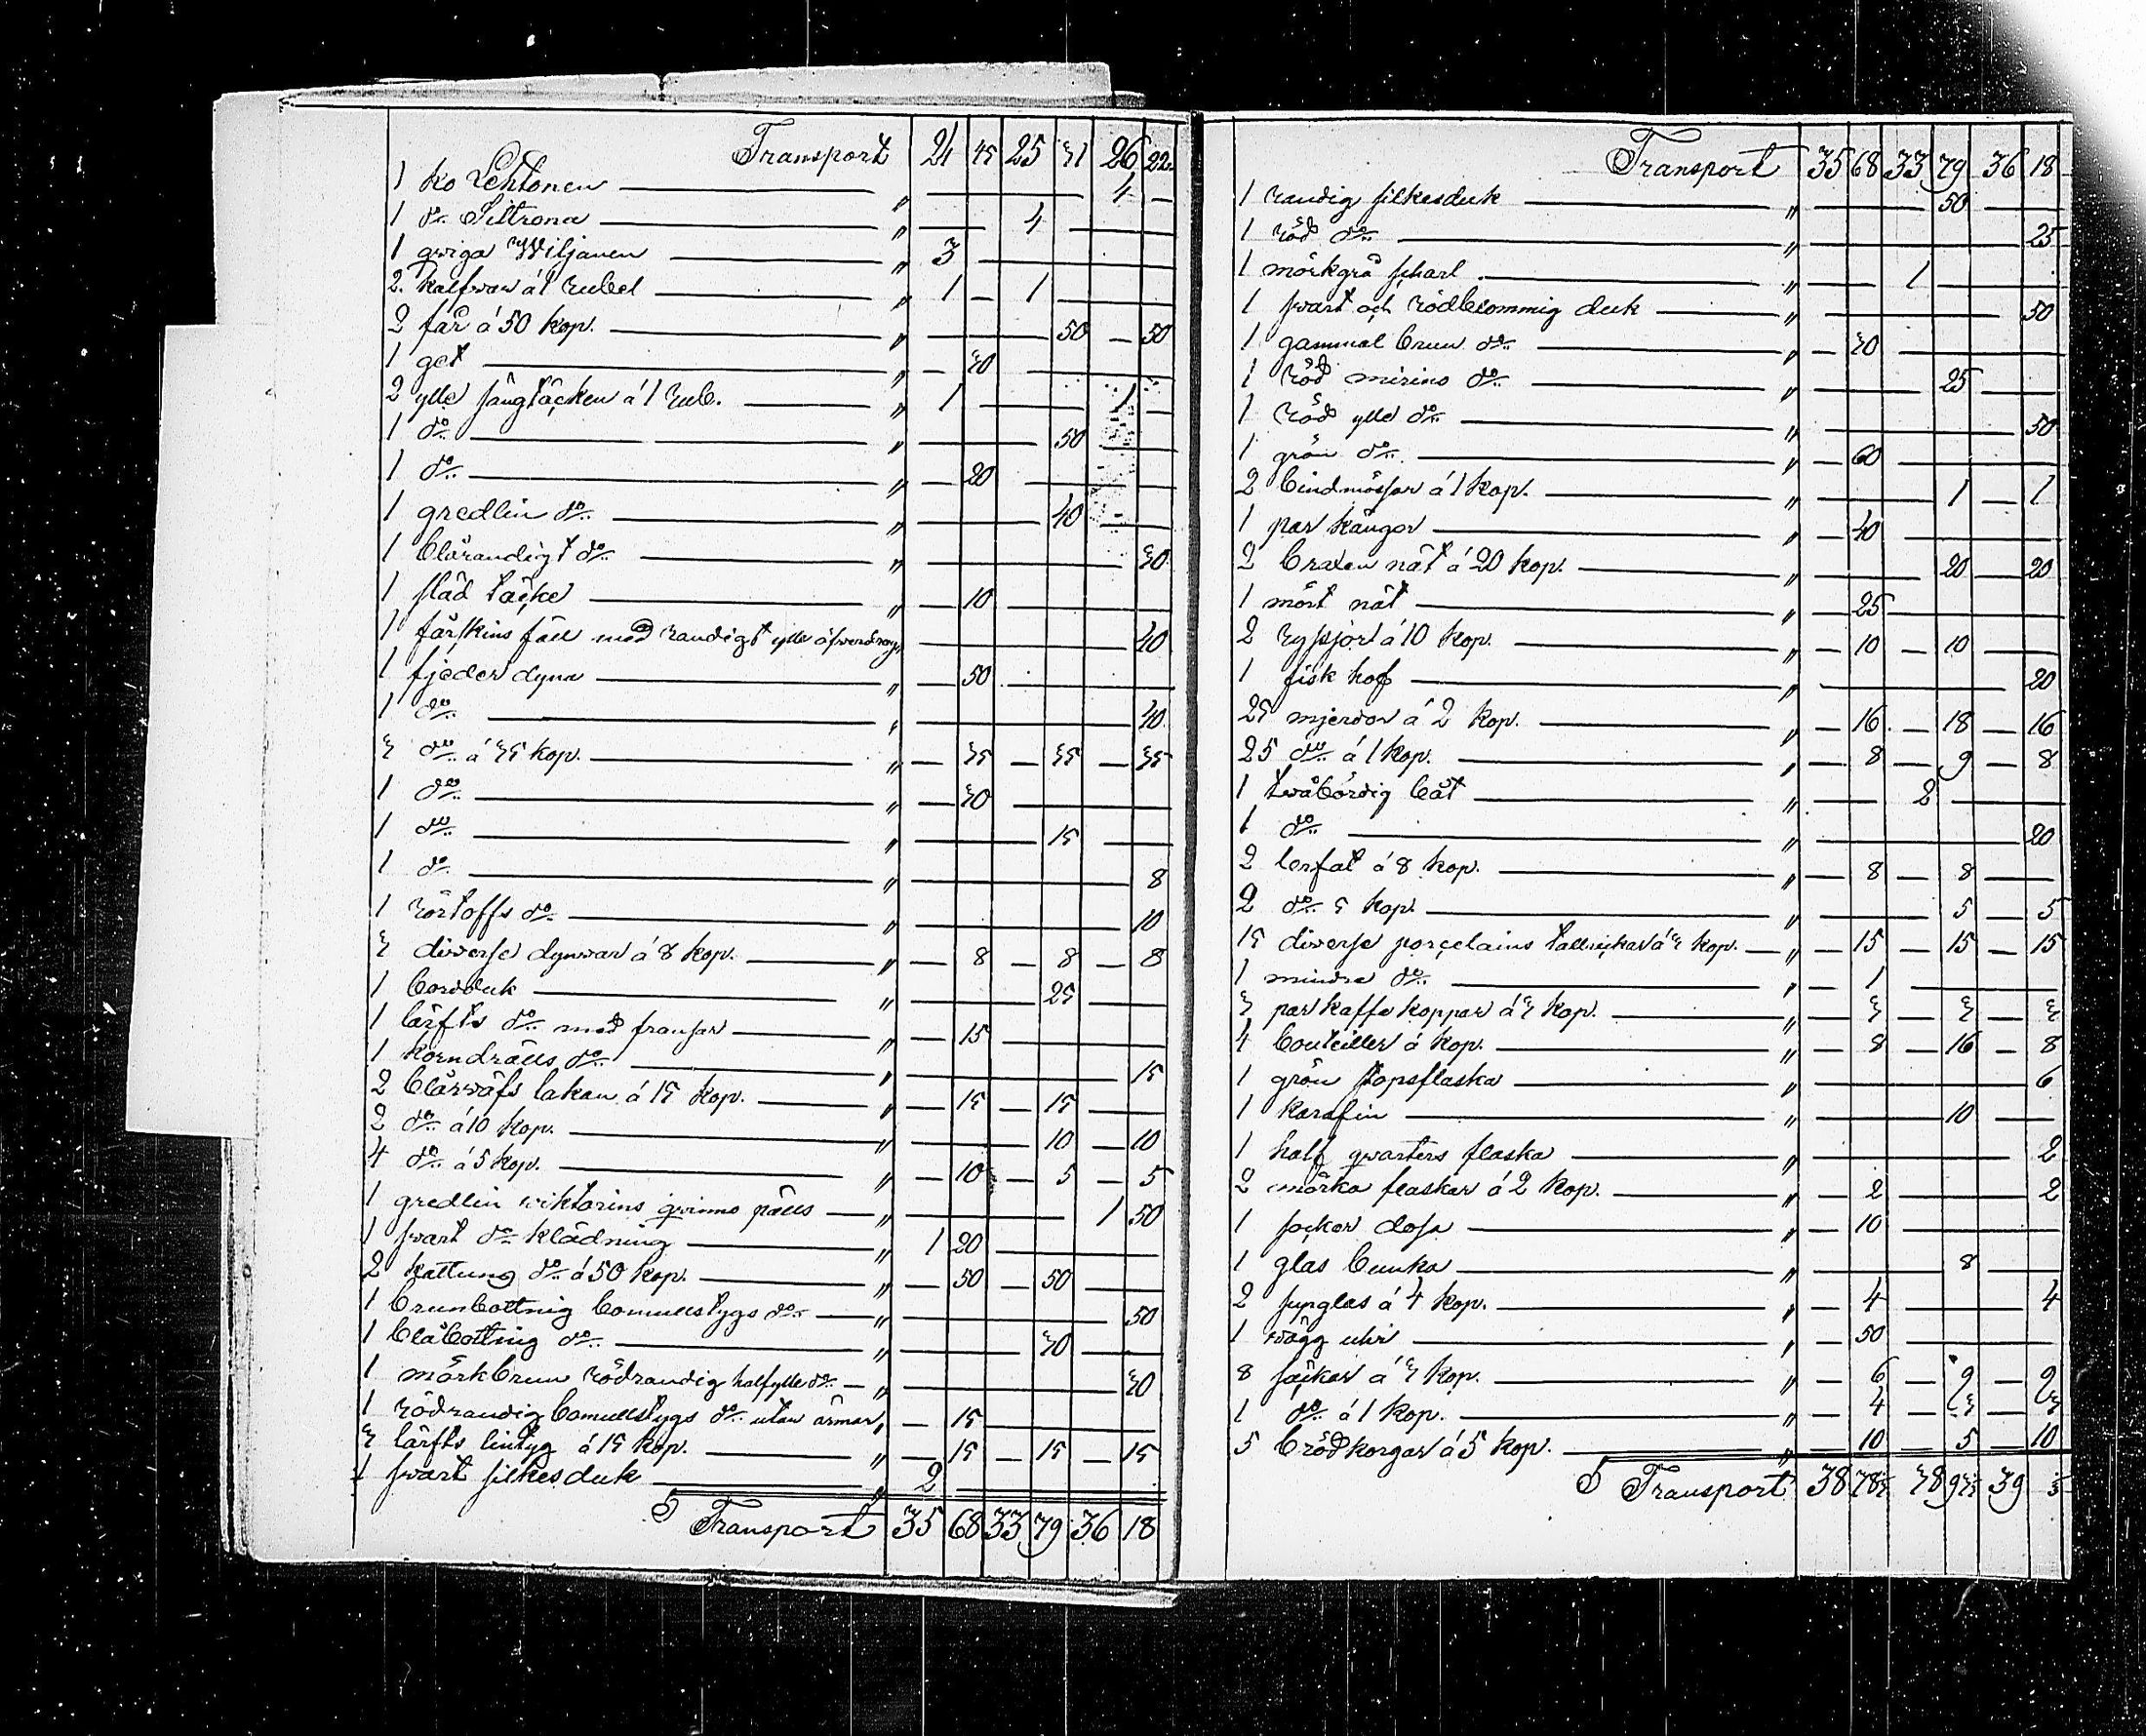 Transport 21 45 25 31 26 22
1 ko Lehtonen " 4 —
1 do Siltrona " 4
1 qwiga Wiljanen " 3
2. kalfwar á 1 rubel " 1 — 1
2 får á 50 kop. " 50 — 50
1 get " — 30
2 ylle sängtäcken á 1 rub. " 1 1 —
1 do " 50
1 do " — 20
1 gredlin do " 40
1 blårandigt do " 30
1 släd täcke " — 10
1 fårskins fäll med randigt ylle öfverdrag 40
1 fjeder dyna " — 50
1 do " 40
3 do á 35 kop. " — 35 — 35 — 35
1 do " — 30
1 do " 15
1 do " 8
1 rörtoffs do " 10
3 diverse dynvar á 8 kop. " — 8 — 8 — 8
1 bordduk " 25
1 lärfts do med fransar " — 15
1 korndrälls do " 15
2 blårwäfs lakan á 15 kop. " — 15 — 15
2 do á 10 kop. " 10 — 10
4 do á 5 kop. " — 10 — 5 — 5
1 gredlin wiktorins qvinns päls " 1 50
1 svart do klädning " 1 20
2 kattuns do á 50 kop. " — 50 — 50
1 brunbottnig bomullstygs do " 50
1 blåbottnig do " 30
1 mörkbrun rödrandig halfylle do " 30
1 rödrandig bomullstygs do utan ärmar " — 15
3 lärfts lintyg á 15 kop. " — 15 — 15 — 15
1 svart silkesduk " 2
S Transport 35 68 33 79 36 18
Transport 35 68 33 79 36 18
1 randig silkesduk " 50
1 röd do " 25
1 mörkgrå scharl " 1
1 svart och rödblommig duk " 50
1 gammal brun do " — 30
1 röd mirins do " 25
1 röd ylle do " 50
1 grön do " — 60
2 bindmössor á 1 kop. " 1 — 1
1 par kängor " — 40
2 braxen nät á 20 kop. " 20 — 20
1 mört nät " — 25
2 ryssjor á 10 kop. " — 10 — 10
1 fisk hof " 20
25 mjerdor á 2 kop. " — 16 — 18 — 16
25 do á 1 kop. " — 8 — 9 — 8
1 twåbördig båt " 2
1 do " 20
2 lerfat á 8 kop. " — 8 — 8
2 do 5 kop. " 5 — 5
15 diverse porçelains tallrickar á 3 kop. " — 15 — 15 — 15
1 mindre do " — 1
3 par kaffe koppar á 3 kop. " — 3 — 3 — 3
4 bouteiller á kop. " — 8 — 16 — 8
1 grön stopsflaska " 6
1 karafin " 10
1 half qwarters flaska " 2
2 mörka flaskor á 2 kop. " — 2 2
1 socker dosa " — 10
1 glas bunka " 8
2 supglas á 4 kop. " — 4 4
1 wägg uhr " — 50
8 säckar á 3 kop. " — 6 — 9 — 9
1 do á 1 kop. " — 4 — —
5 brödkorgar á 5 kop. " — 10 — 5 — 10
S Transport 38 78 38 39